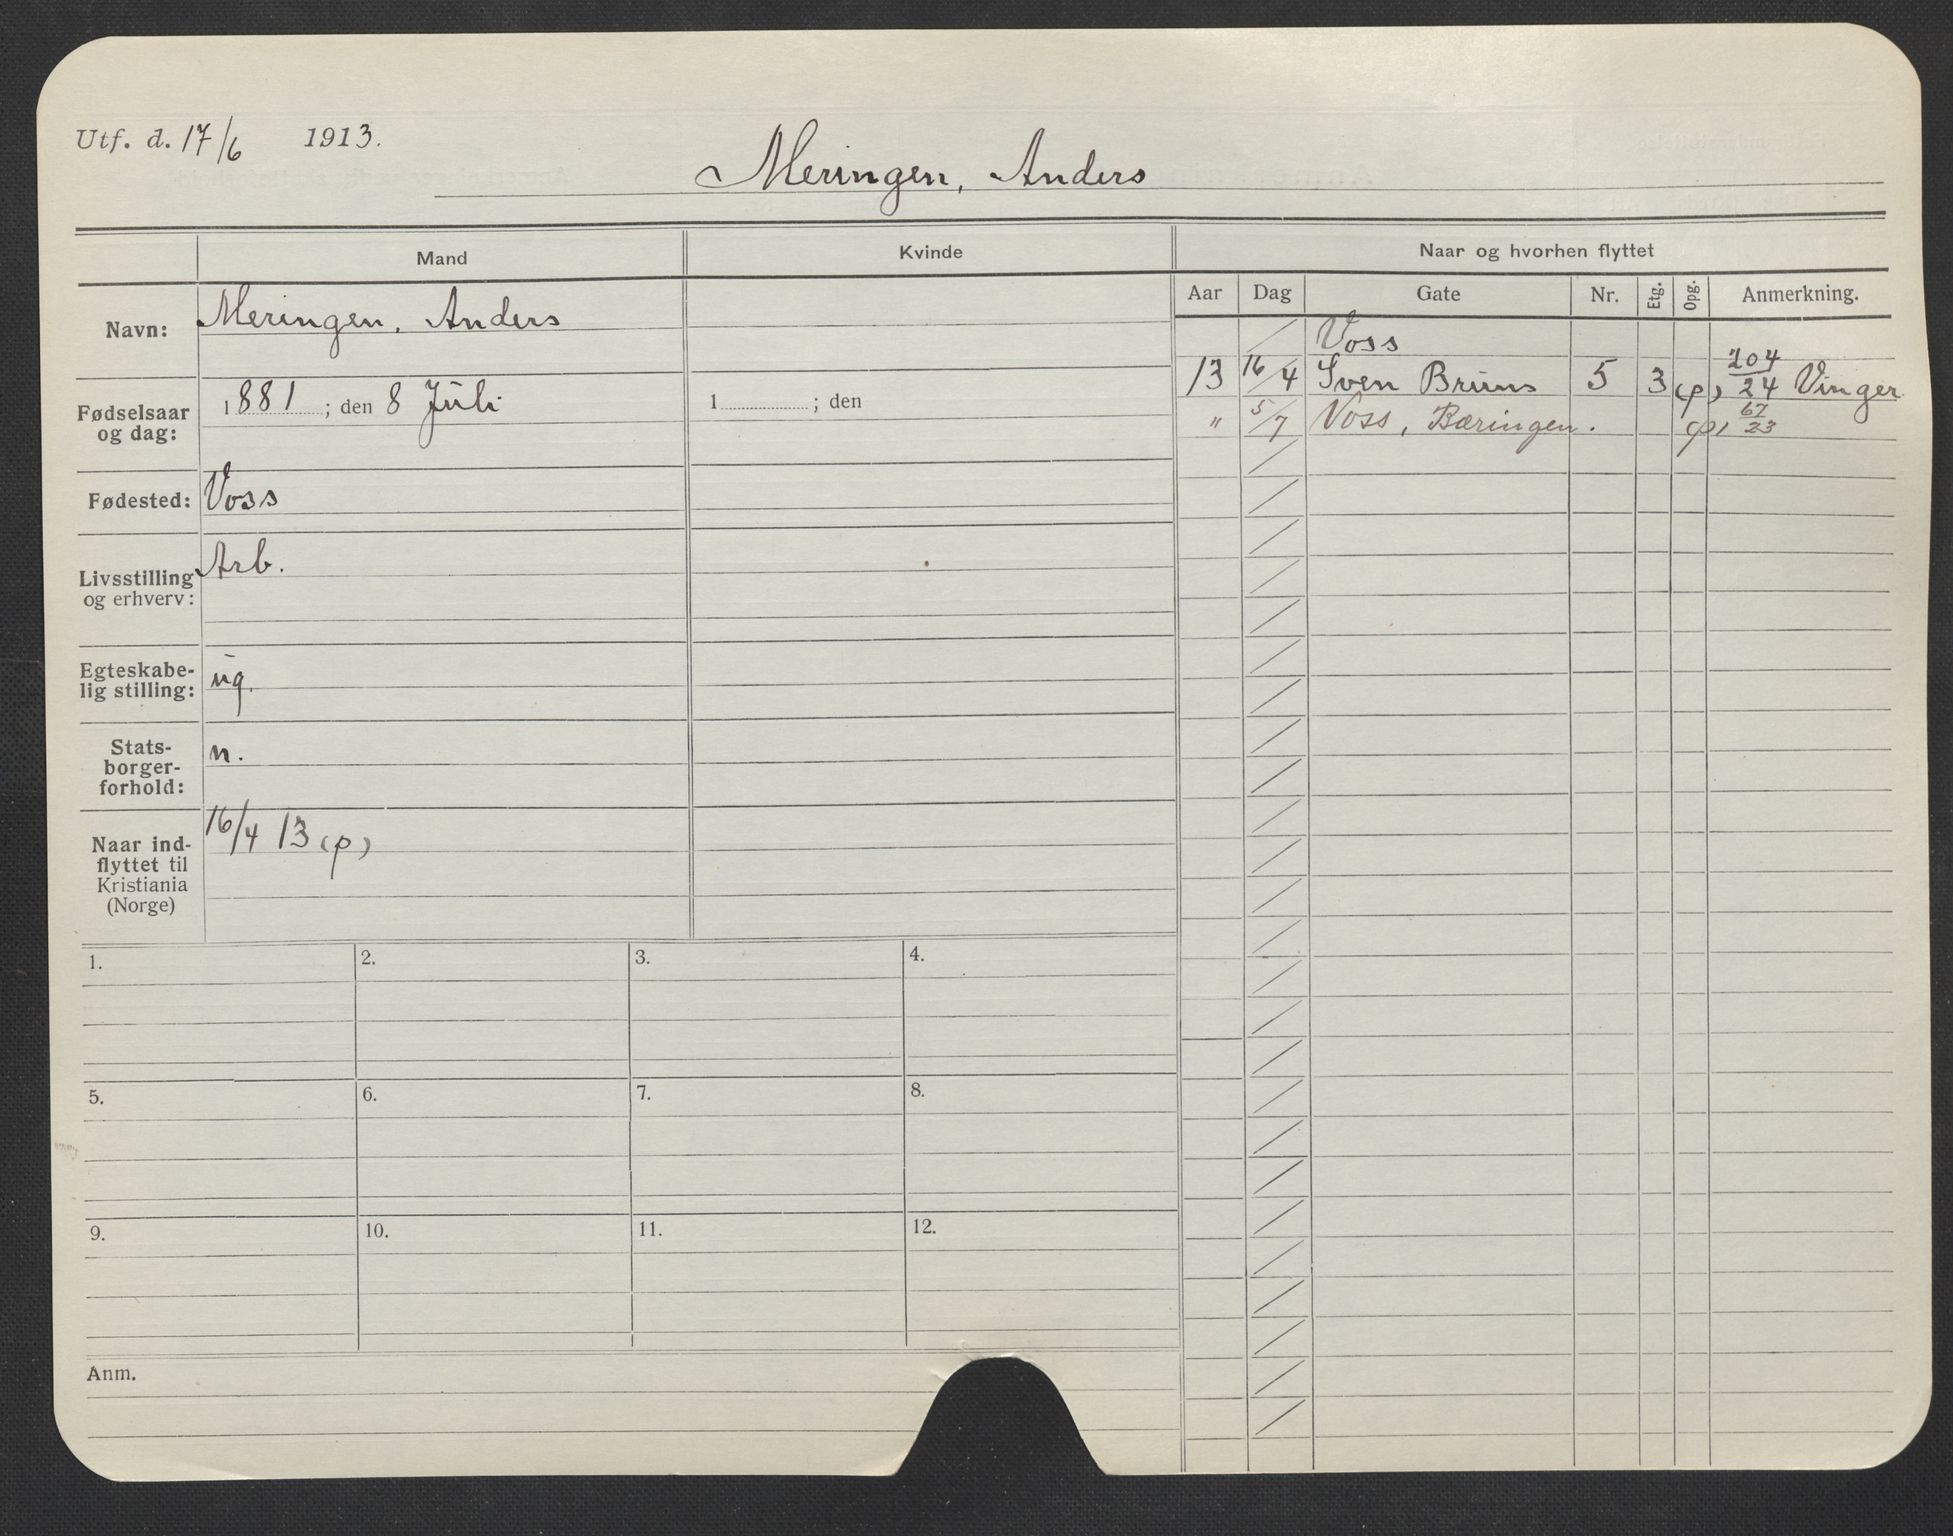 Utf. d. 17/6 1913.
Meringen, Anders
Mand
Kvinde
Naar og hvorhen flyttet
Aar Dag Gate Nr. Etg. Opg. Anmerkning.
Navn: Meringen, Anders
Fødselsaar og dag: 1881; den 8 Juli
1 ; den
Fødested: Voss
Livsstilling og erhverv: Arb.
Egteskabe-
lig stilling: ug.
Stats-
borger-
forhold: n.
Naar ind-
flyttet til
Kristiania
(Norge) 16/4 13 (p)
Voss
13 16/4 Sven Bruns 5 3 (p) 204/24 Vinger
" 5/7 Voss, Bæringen. (p) 67/23
1. 2. 3. 4.
5. 6. 7. 8.
9. 10. 11. 12.
Anm.